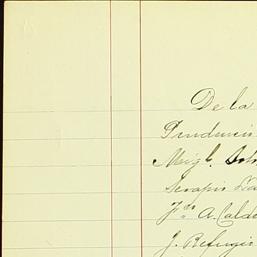 De la
Prudenci
Migl.
Serapio
Fco A. Calde
J. Refugio